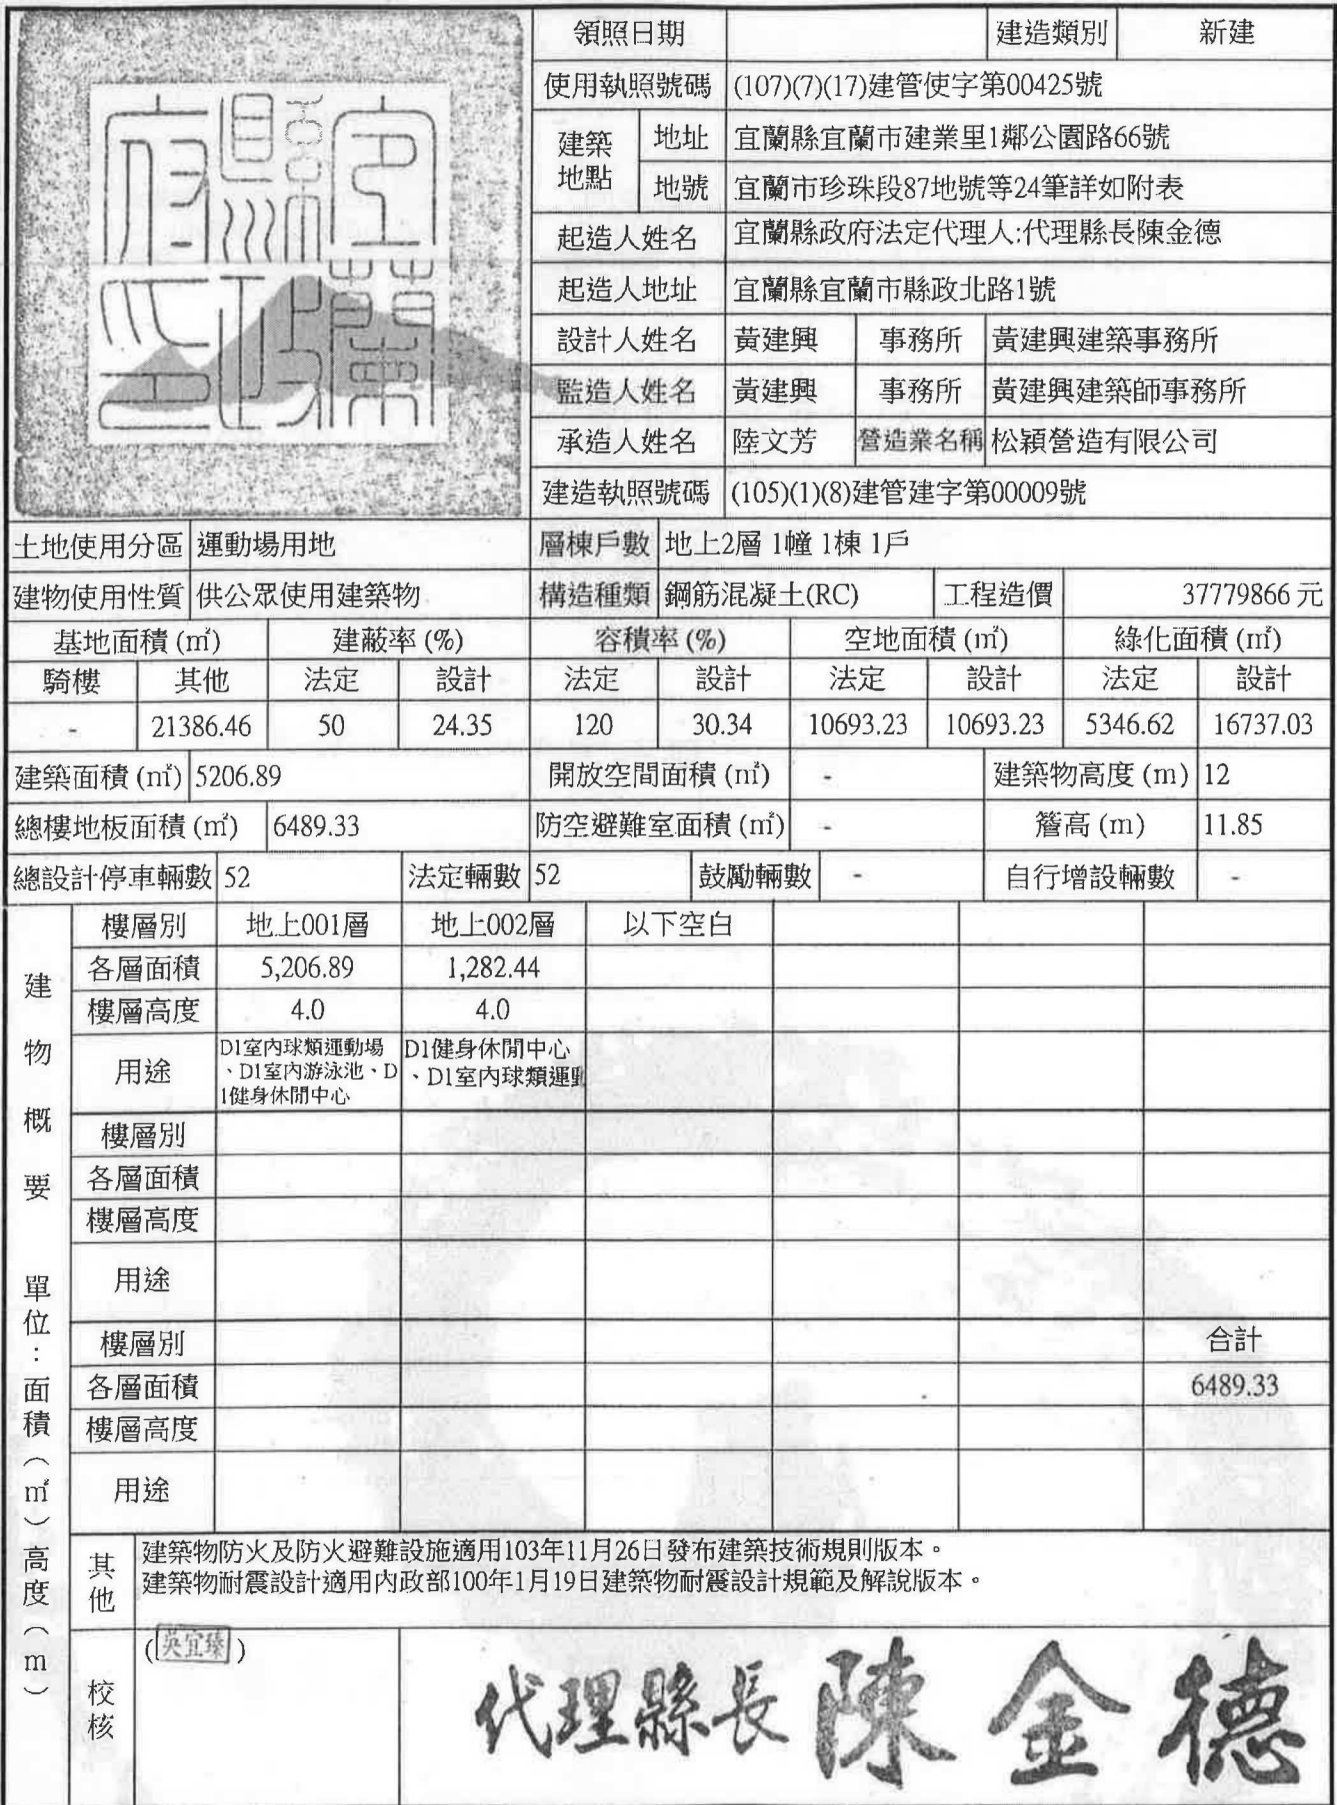 領照日期 建造類別 新建
使用執照號碼 (107)(7)(17)建管使字第00425號
建築地點 地址 宜蘭縣宜蘭市建業里1鄰公園路66號
地號 宜蘭市珍珠段87地號等24筆詳如附表
起造人姓名 宜蘭縣政府法定代理人:代理縣長陳金德
起造人地址 宜蘭縣宜蘭市縣政北路1號
設計人姓名 黃建興 事務所 黃建興建築事務所
監造人姓名 黃建興 事務所 黃建興建築師事務所
承造人姓名 陸文芳 營造業名稱 松穎營造有限公司
建造執照號碼 (105)(1)(8)建管建字第00009號
宜蘭縣政府之印
土地使用分區 運動場用地 層棟戶數 地上2層 1幢 1棟 1戶
建物使用性質 供公眾使用建築物 構造種類 鋼筋混凝土(RC) 工程造價 37779866 元
基地面積 (㎡) 建蔽率 (%) 容積率 (%) 空地面積 (㎡) 綠化面積 (㎡)
騎樓 其他 法定 設計 法定 設計 法定 設計 法定 設計
- 21386.46 50 24.35 120 30.34 10693.23 10693.23 5346.62 16737.03
建築面積 (㎡) 5206.89 開放空間面積 (㎡) - 建築物高度 (m) 12
總樓地板面積 (㎡) 6489.33 防空避難室面積 (㎡) - 簷高 (m) 11.85
總設計停車輛數 52 法定輛數 52 鼓勵輛數 - 自行增設輛數 -
建物概要 單位:面積(㎡)高度(m)
樓層別 地上001層 地上002層 以下空白
各層面積 5,206.89 1,282.44
樓層高度 4.0 4.0
用途 D1室內球類運動場、D1室內游泳池、D1健身休閒中心 D1健身休閒中心、D1室內球類運動
樓層別
各層面積
樓層高度
用途
樓層別 合計
各層面積 6489.33
樓層高度
用途
其他 建築物防火及防火避難設施適用103年11月26日發布建築技術規則版本。
建築物耐震設計適用內政部100年1月19日建築物耐震設計規範及解說版本。
校核 (吳宜臻)
代理縣長 陳金德